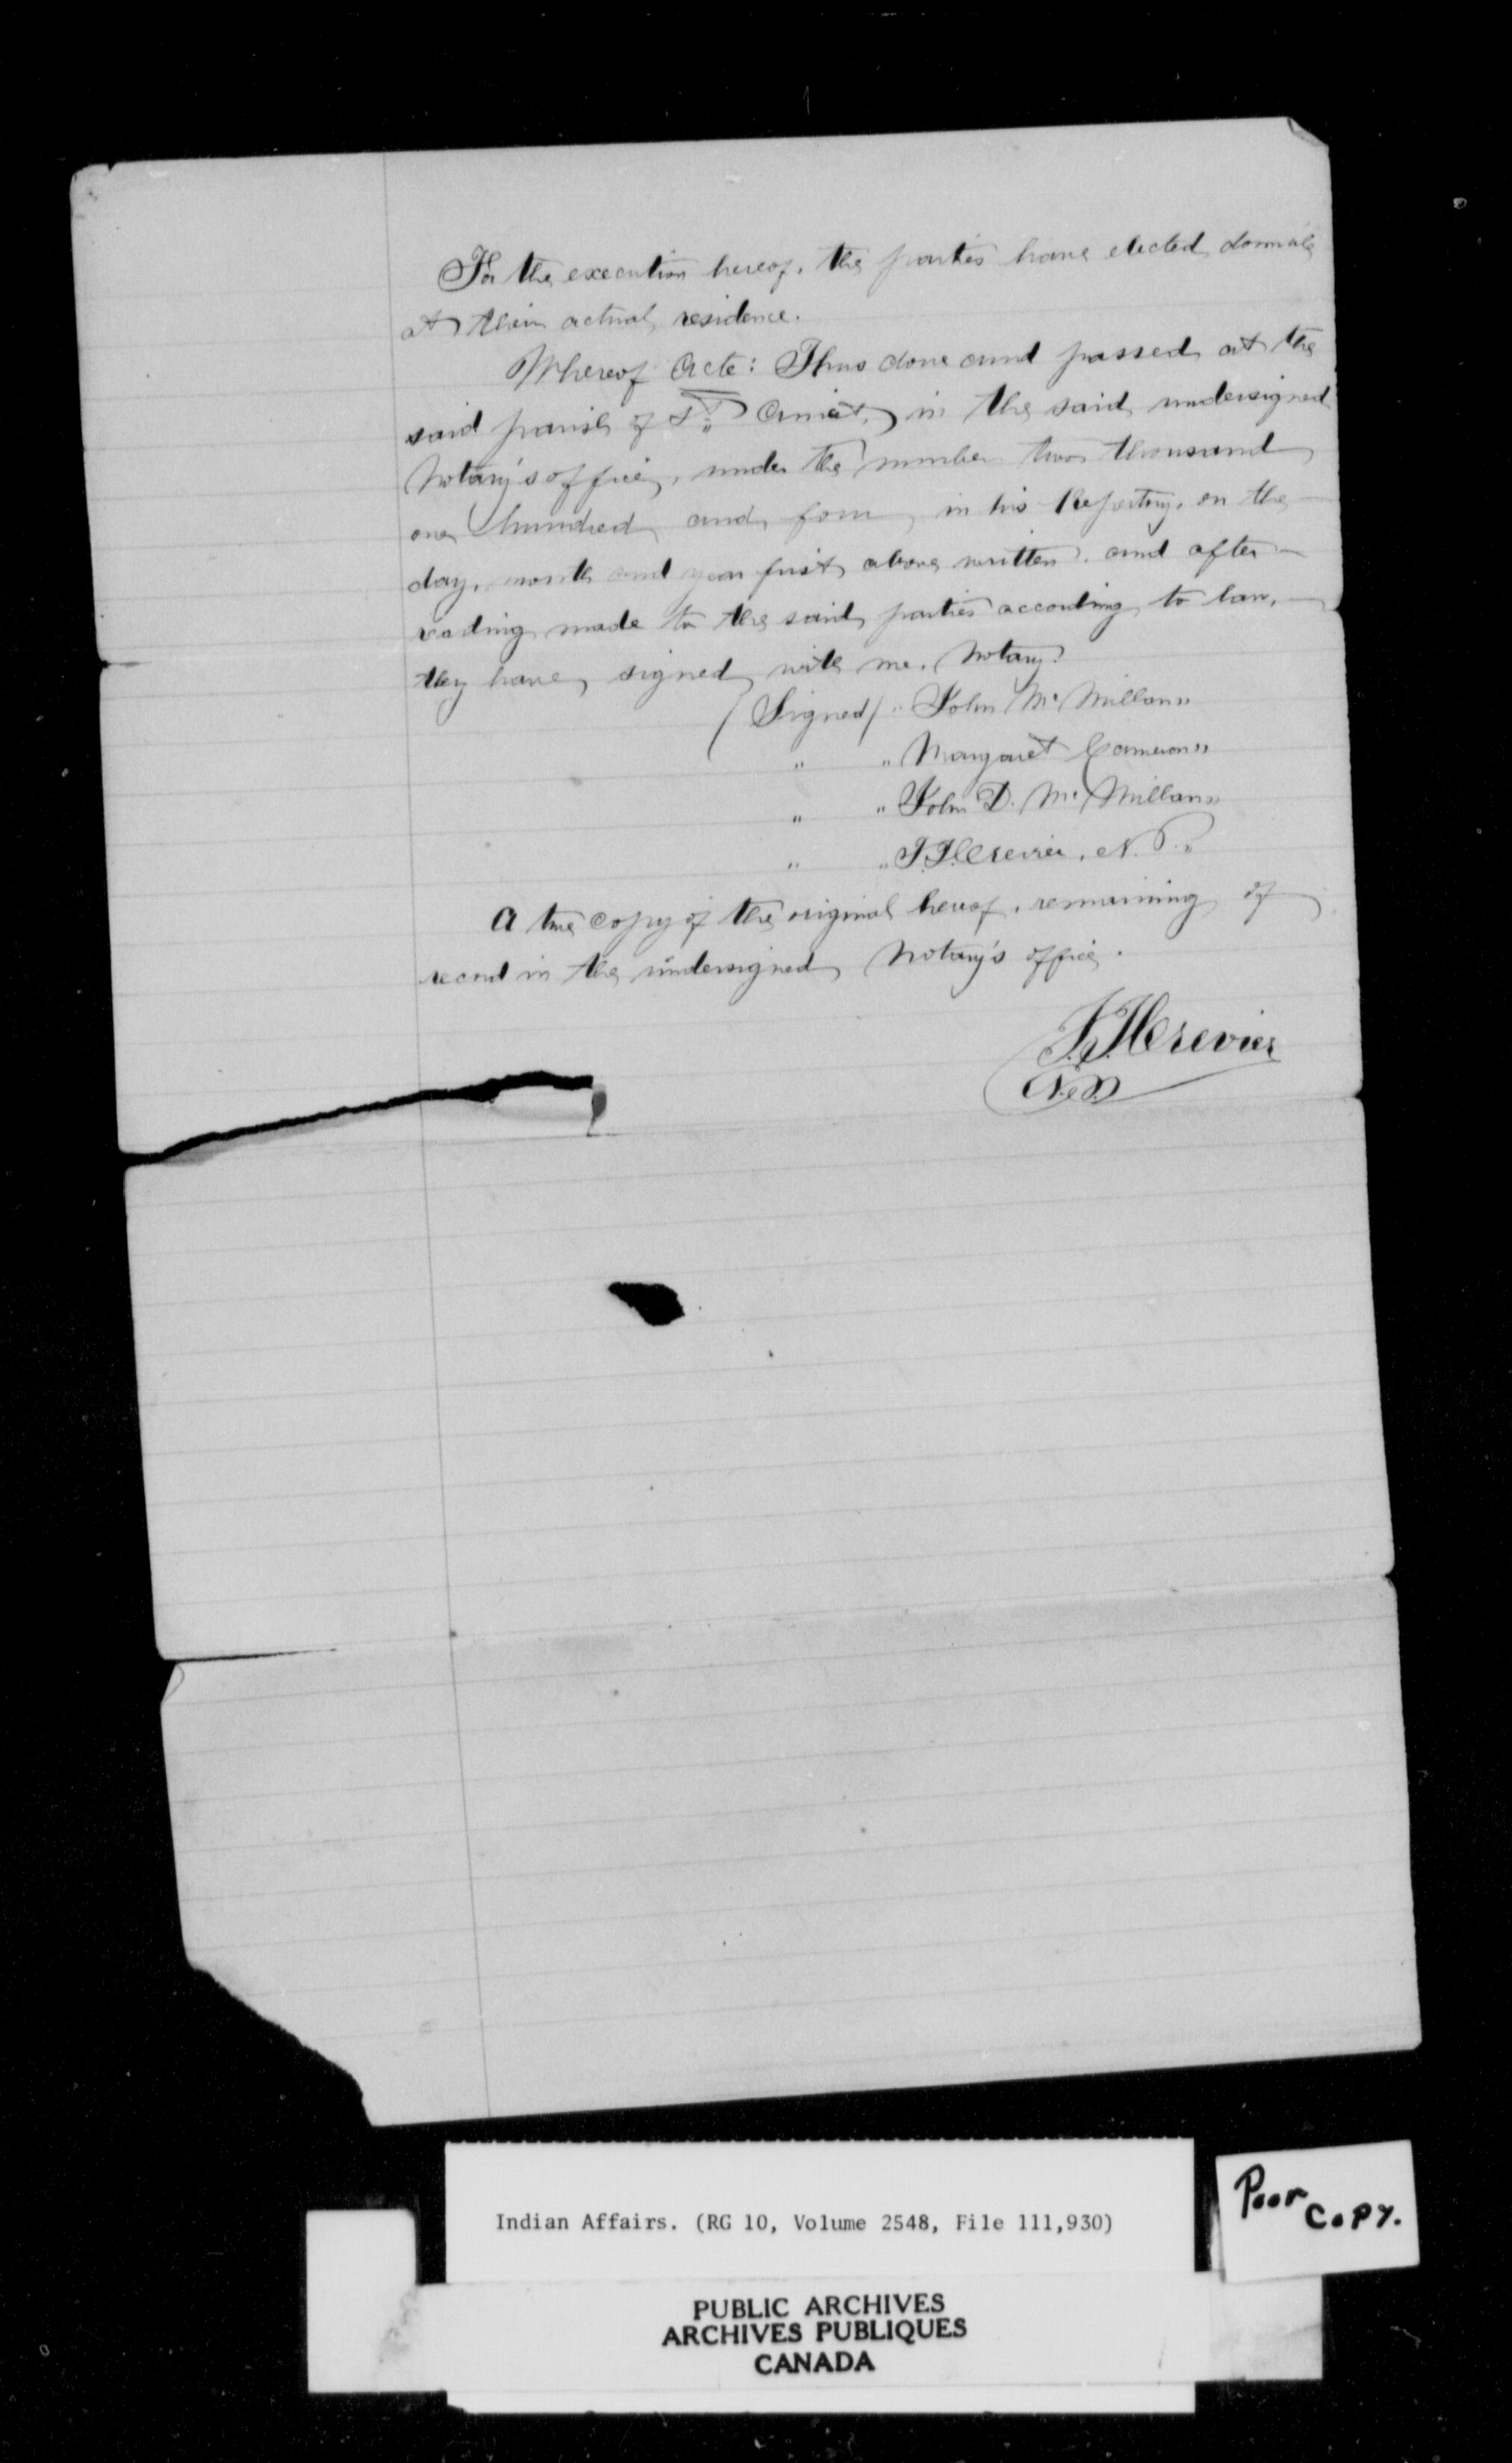 For the execution hereof, the parties have elected domicile
at their actual residence.
Whereof Acte: Thus done and passed at the
said parish of St. Anicet, in the said undersigned
Notary's office, under the number two thousand
one hundred and four, in his Repertory, on the
day, month and year first above written, and after
reading made to the said parties according to law,
they have signed with me, Notary.
(Signed) "John Mc Millan"
" "Margaret Cameron"
" "John D. Mc Millan"
" " Crevier, N. P."
A true copy of the original hereof, remaining of
record in the undersigned Notary's office.
Crevier
N.P.
Indian Affairs. (RG 10, Volume 2548, File 111,930)
Poor
Copy.
PUBLIC ARCHIVES
ARCHIVES PUBLIQUES
CANADA